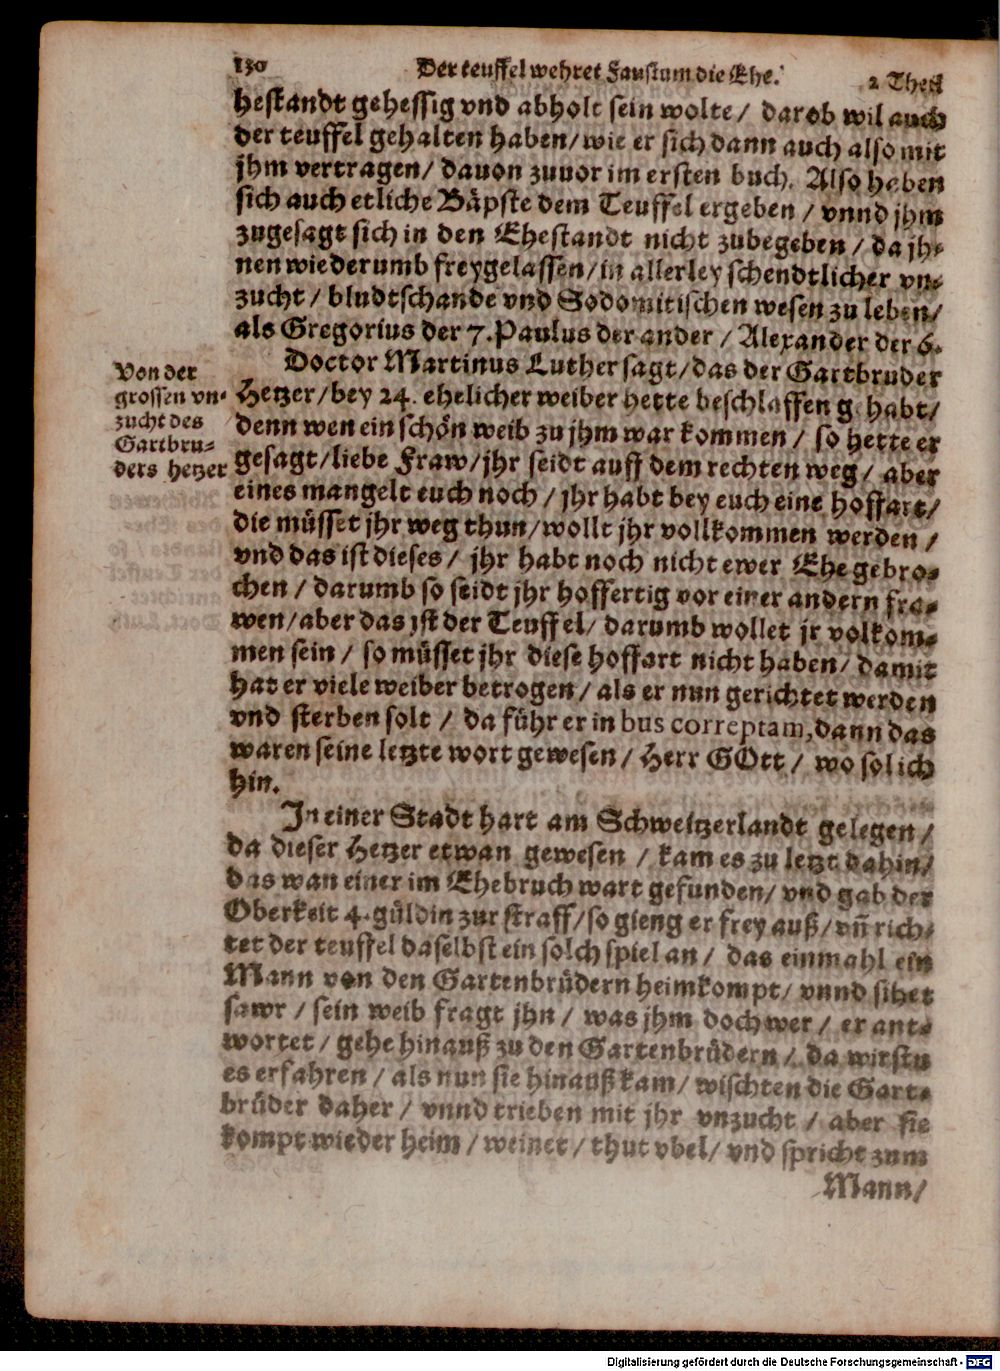 130 Der teuffel wehret Faustum die Ehe. 2 Theil
hestandt gehessig vnd abholt sein wolte / darob wil auch
der teuffel gehalten haben / wie er sich dann auch also mit
jhm vertragen / dauon zuuor im ersten buch. Also haben
sich auch etliche Bäpste dem Teuffel ergeben / vnnd jhm
zugesagt sich in den Ehestandt nicht zubegeben / da jh-
nen wiederumb freygelassen / in allerley schendtlicher vn-
zucht / bludtschande vnd Sodomitischen wesen zu leben /
als Gregorius der 7. Paulus der ander / Alexander der 6.
Doctor Martinus Luther sagt / das der Gartbruder
Hetzer / bey 24. ehelicher weiber hette beschlaffen gehabt /
denn wen ein schön weib zu jhm war kommen / so hette er
gesagt / liebe Fraw / jhr seidt auff dem rechten weg / aber
eines mangelt euch noch / jhr habt bey euch eine hoffart /
die müsset jhr weg thun / wollt jhr vollkommen werden /
vnd das ist dieses / jhr habt noch nicht ewer Ehe gebro-
chen / darumb so seidt jhr hoffertig vor einer andern fra-
wen / aber das jst der Teuffel / darumb wollet jr volkom-
men sein / so müsset jhr diese hoffart nicht haben / damit
hat er viele weiber betrogen / als er nun gerichtet werden
vnd sterben solt / da führ er in bus correptam, dann das
waren seine letzte wort gewesen / Herr GOtt / wo sol ich
hin.
Von der
grossen vn-
zucht des
Gartbru-
ders hetzer
In einer Stadt hart am Schweitzerlandt gelegen /
da dieser Hetzer etwan gewesen / kam es zu letzt dahin /
das wan einer im Ehebruch wart gefunden / vnd gab der
Oberkeit 4. güldin zur straff / so gieng er frey auß / vñ rich-
tet der teuffel daselbst ein solch spiel an / das einmahl ein
Mann von den Gartenbrüdern heimkompt / vnnd sihet
sawr / sein weib fragt jhn / was jhm doch wer / er ant-
wortet / gehe hinauß zu den Gartenbrüdern / da wirstu
es erfahren / als nun sie hinauß kam / wischten die Gart-
brüder daher / vnnd trieben mit jhr vnzucht / aber sie
kompt wieder heim / weinet / thut vbel / vnd spricht zum
Mann /
Digitalisierung gefördert durch die Deutsche Forschungsgemeinschaft - DFG